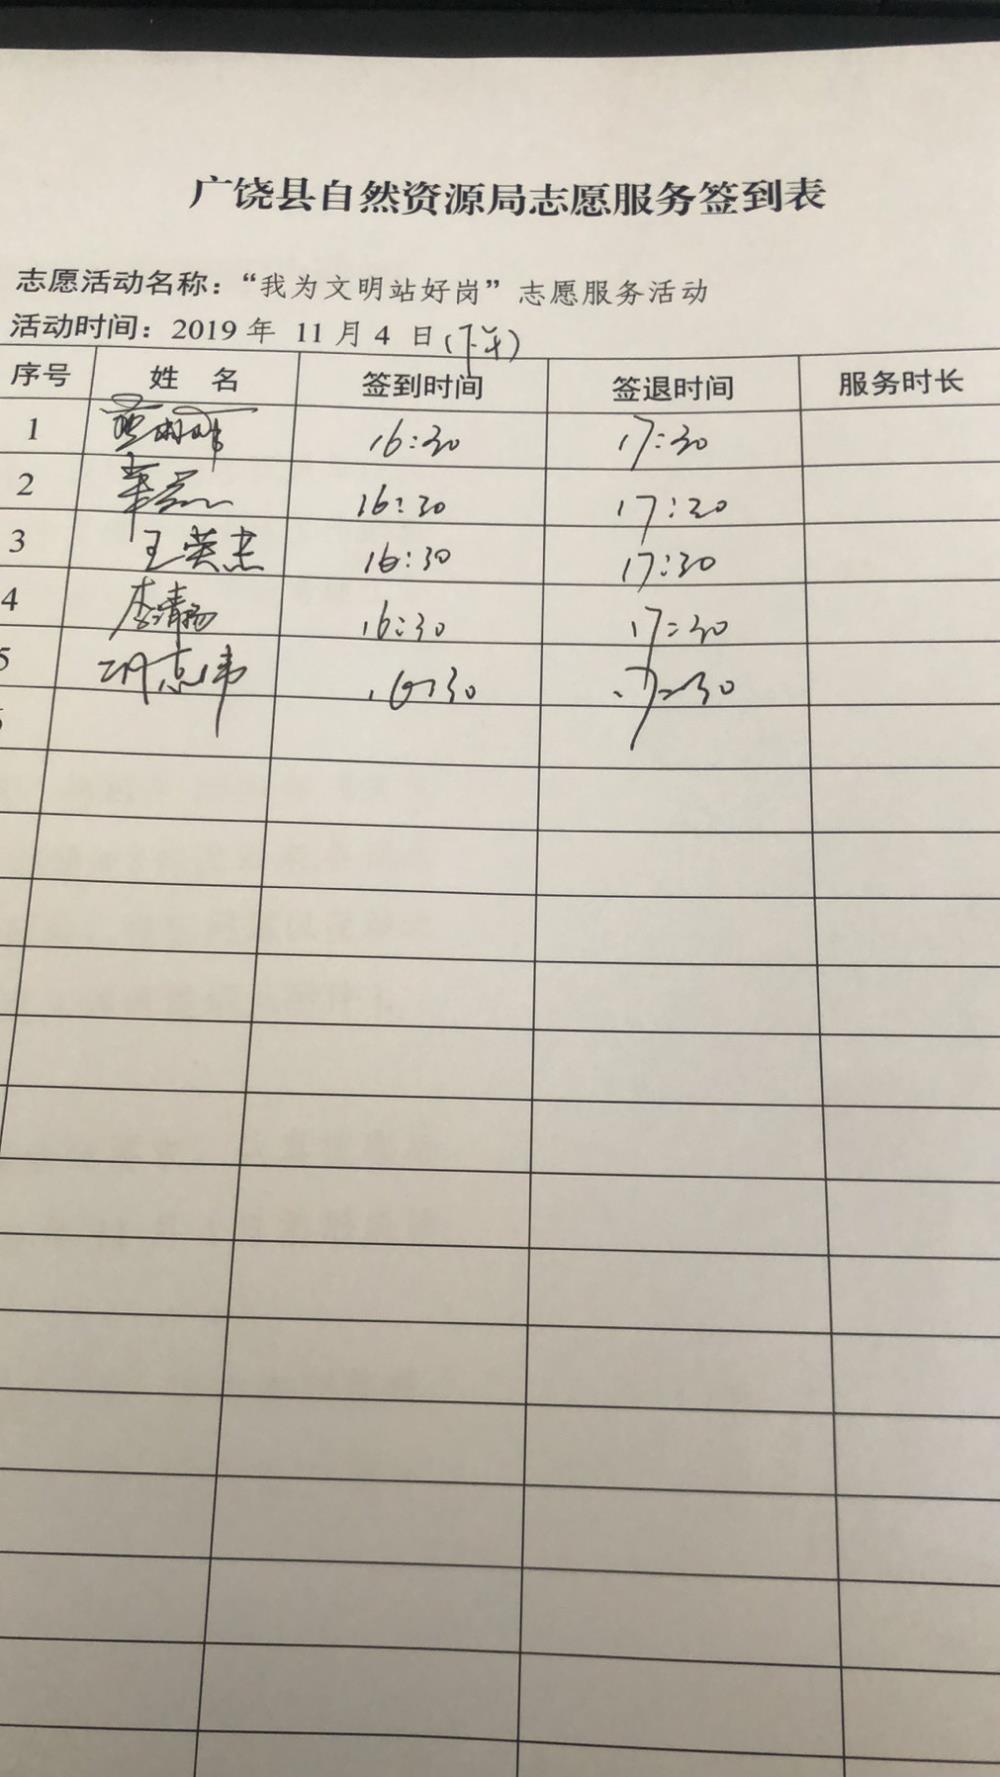 广饶县自然资源局志愿服务签到表
志愿活动名称：“我为文明站好岗”志愿服务活动
活动时间：2019 年 11 月 4 日(下午)
序号 姓 名 签到时间 签退时间 服务时长
1 16:30 17:30
2 16:30 17:30
3 王英杰 16:30 17:30
4 16:30 17:30
5 16:30 17:30